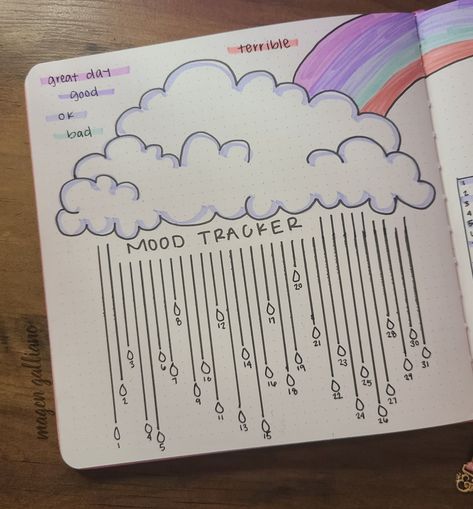 great day
good
ok
bad
terrible
MOOD TRACKER
1
2
3
4
5
6
7
8
9
10
11
12
13
14
15
16
17
18
19
20
21
22
23
24
25
26
27
28
29
30
31
magen galliano
1
2
3
4
5